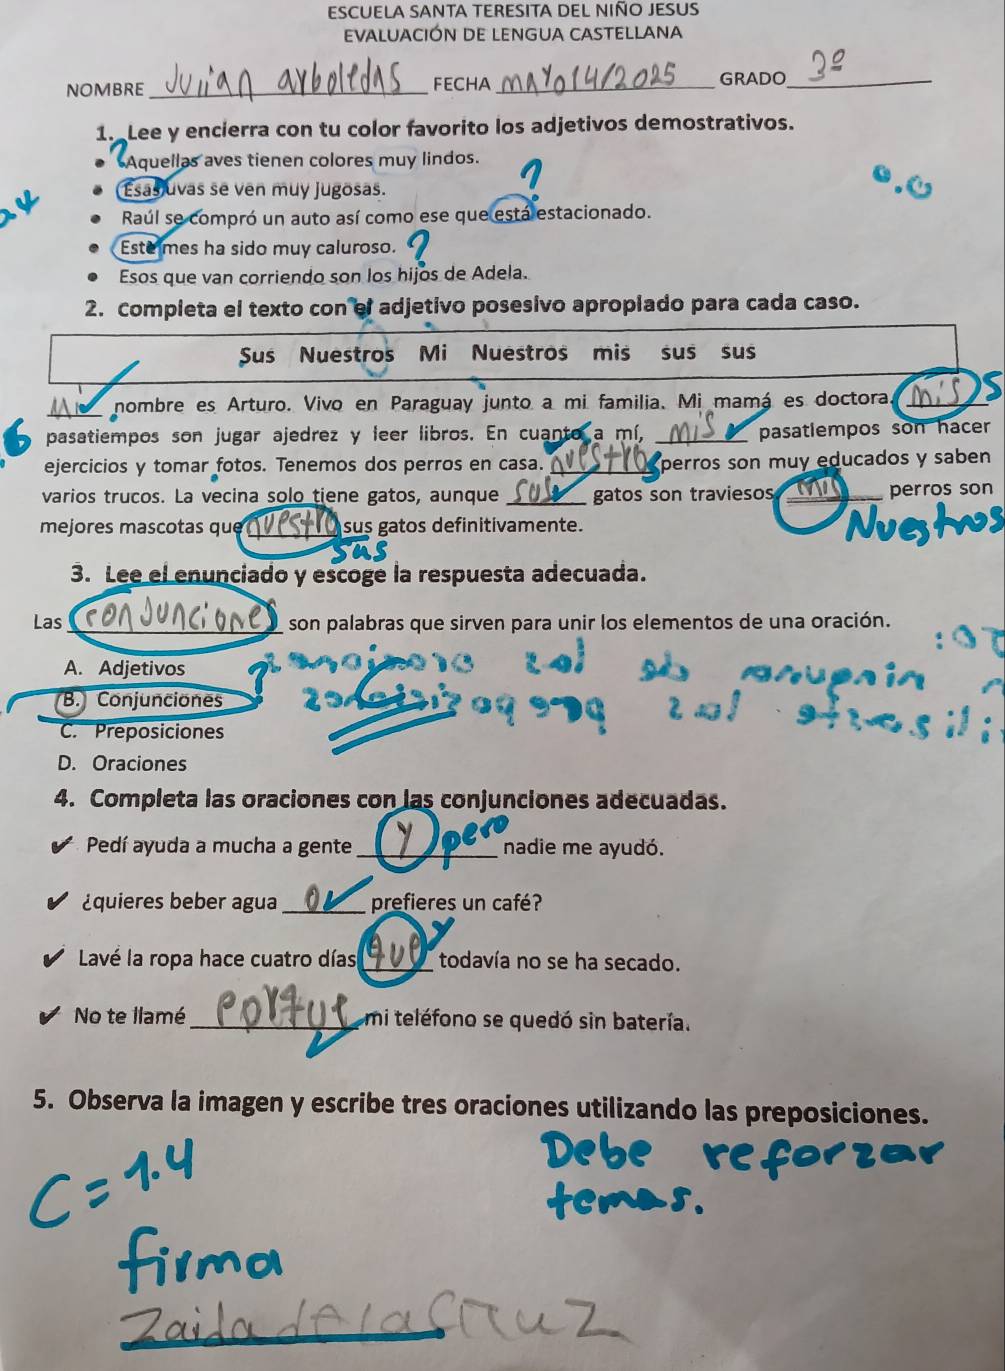 ESCUELA SANTA TERESITA DEL NIÑO JESUS
EVALUACIÓN DE LENGUA CASTELLANA
NOMBRE Julian arboledas FECHA mayo 14/2025 GRADO 3º
1. Lee y encierra con tu color favorito los adjetivos demostrativos.
• Aquellas aves tienen colores muy lindos.
• Esas uvas se ven muy jugosas. ?
• Raúl se compró un auto así como ese que está estacionado.
• Este mes ha sido muy caluroso. ?
• Esos que van corriendo son los hijos de Adela.
2. Completa el texto con el adjetivo posesivo apropiado para cada caso.
Sus Nuestros Mi Nuestros mis sus sus
Mi nombre es Arturo. Vivo en Paraguay junto a mi familia. Mi mamá es doctora. mis S
pasatiempos son jugar ajedrez y leer libros. En cuanto a mí, mis pasatiempos son hacer
ejercicios y tomar fotos. Tenemos dos perros en casa. nuestro perros son muy educados y saben
varios trucos. La vecina solo tiene gatos, aunque sus gatos son traviesos. mis perros son
mejores mascotas que nuestro sus gatos definitivamente. Nuestros
sus
3. Lee el enunciado y escoge la respuesta adecuada.
Las conjunciones son palabras que sirven para unir los elementos de una oración.
A. Adjetivos
B. Conjunciones
C. Preposiciones
D. Oraciones
4. Completa las oraciones con las conjunciones adecuadas.
✔ Pedí ayuda a mucha a gente y pero nadie me ayudó.
✔ ¿quieres beber agua o prefieres un café?
✔ Lavé la ropa hace cuatro días que y todavía no se ha secado.
✔ No te llamé porque mi teléfono se quedó sin batería.
5. Observa la imagen y escribe tres oraciones utilizando las preposiciones.
C = 1.4
Debe reforzar
temas.
firma
Zaida de la Cruz